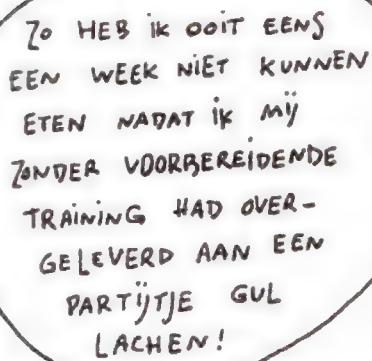 ZO HEB iK OOiT EENS
EEN WEEK NiET KUNNEN
ETEN NADAT iK Mij
ZONDER VOORBEREiDENDE
TRAiNiNG HAD OVER-
GELEVERD AAN EEN
PARTijTJE GUL
LACHEN!